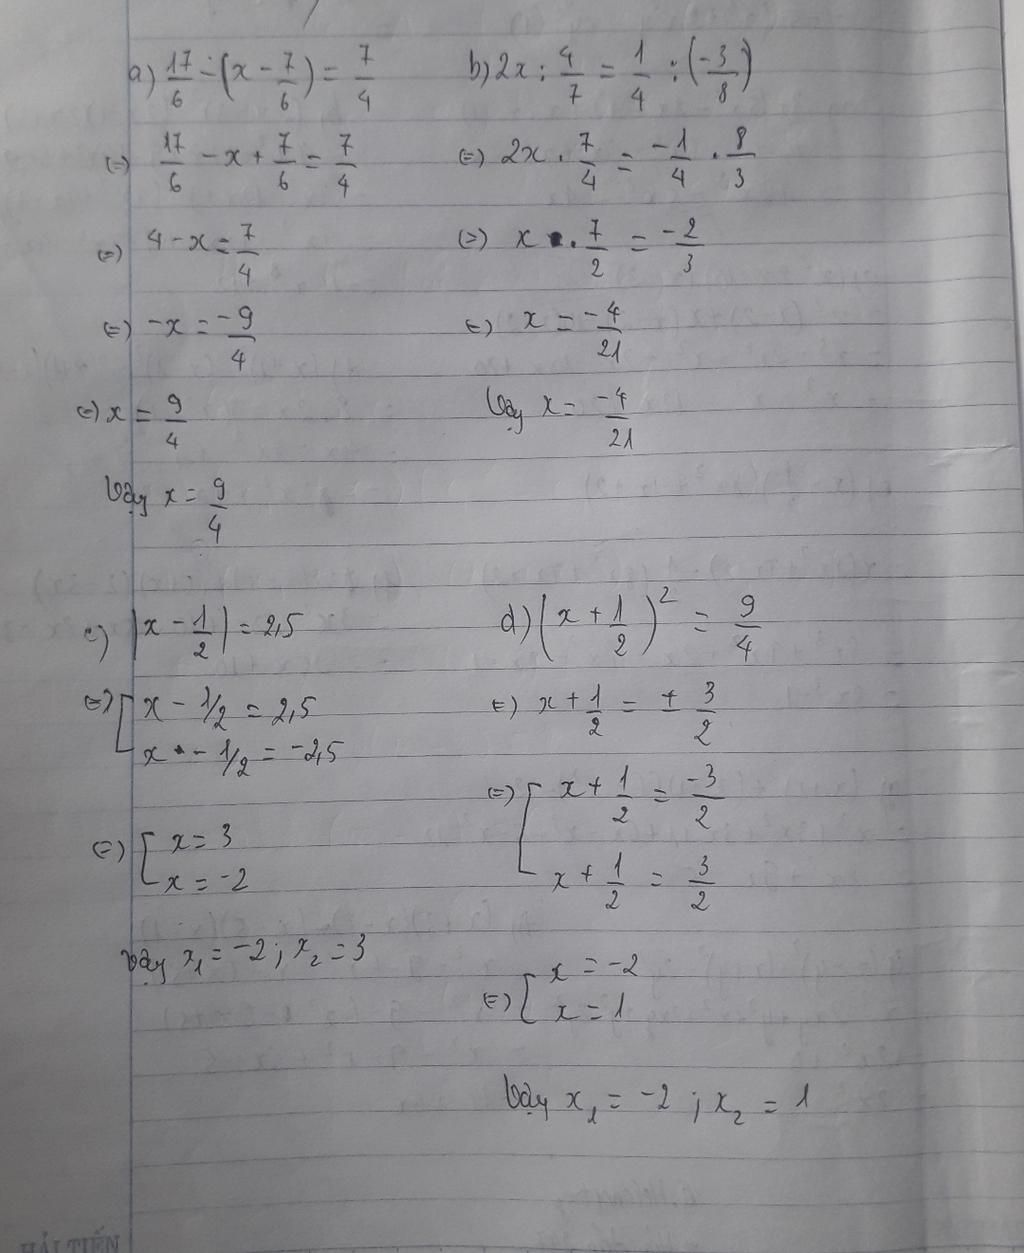 a) 17/6 - (x - 7/6) = 7/4
(=) 17/6 - x + 7/6 = 7/4
(=) 4 - x = 7/4
(=) -x = -9/4
(=) x = 9/4
Vậy x = 9/4
b) 2x : 4/7 = 1/4 : (-3/8)
(=) 2x . 7/4 = -1/4 . 8/3
(=) x . 7/2 = -2/3
(=) x = -4/21
Vậy x = -4/21
c) |x - 1/2| = 2,5
(=) [ x - 1/2 = 2,5
x - 1/2 = -2,5
(=) [ x = 3
x = -2
Vậy x₁ = -2 ; x₂ = 3
d) (x + 1/2)² = 9/4
(=) x + 1/2 = ± 3/2
(=) [ x + 1/2 = -3/2
x + 1/2 = 3/2
(=) [ x = -2
x = 1
Vậy x₁ = -2 ; x₂ = 1
HẢI TIẾN